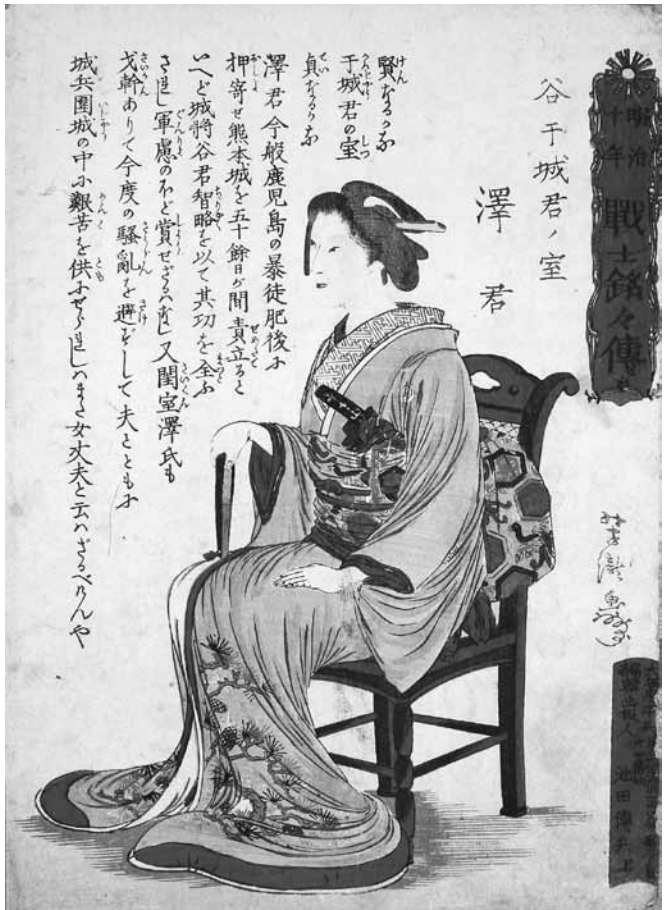 明治十年
戰士銘々傳
谷干城君ノ室
澤君
賢なるかな
干城君の室
貞なるかな
澤君今般鹿児島の暴徒肥後に
押寄せ熊本城を五十餘日が間責立ると
いへど城将谷君智略を以て其功を全ふ
されし軍慮のほど賞せざるはなし又閨室澤氏も
才幹ありて今度の騒亂を避ずして夫とともに
城兵圍城の中に艱苦を供にせられしはまた女丈夫と云はざるべけんや
出版人
池田傳兵